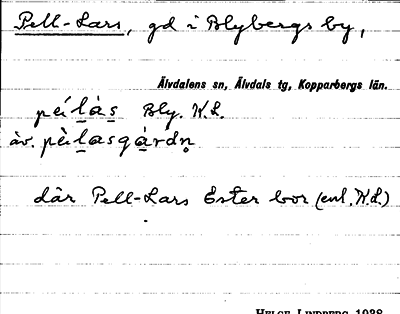 Pell-Lars, gd i Blybergs by,
Älvdalens sn, Älvdals tg, Kopparbergs län.
peílàs Bly. K.L.
äv. pèilasgàrdn̥
där Pell-Lars Ester bor (enl. K.L.)
HELGE LINDBERG 1938